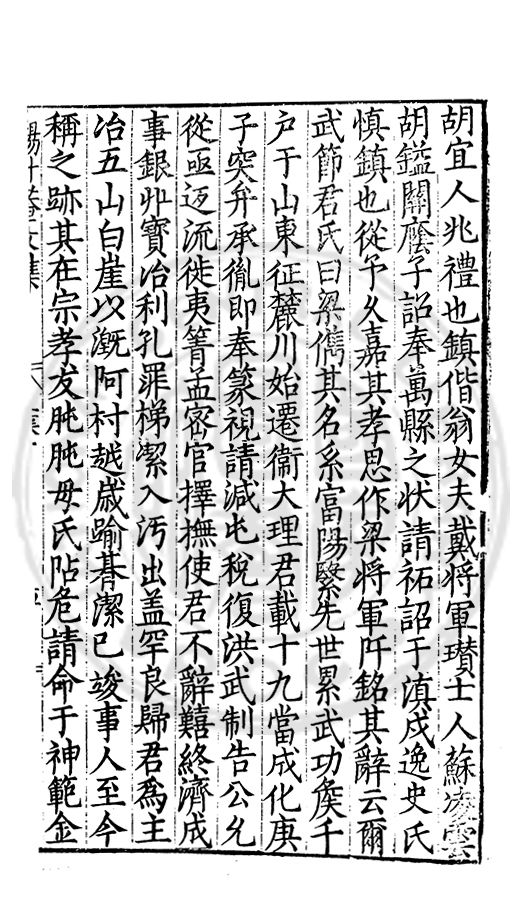 胡宜人兆禮也鎮偕翁女夫戴将軍瓚士人蘇凌雲
胡鎰闢廕子詔奉萬縣之状請祏詔于滇戍逸史氏
慎鎮也從予乆嘉其孝思作梁将軍阡銘其辭云爾
武節君氏曰梁儁其名系富陽繄先世累武功矦千
户于山東征麓川始遷衞大理君載十九當成化庚
子突弁承胤即奉篆視請減屯稅復洪武制告公允
從亟迈流徙夷箐孟密官擇撫使君不辭囏終濟成
事銀丱寶冶利孔罪梯潔入汚出盖罕良歸君為主
冶五山白崖以漑阿村越歲踰朞潔已竣事人至今
稱之跡其在宗孝友肫肫毋氏阽危請命于神範金